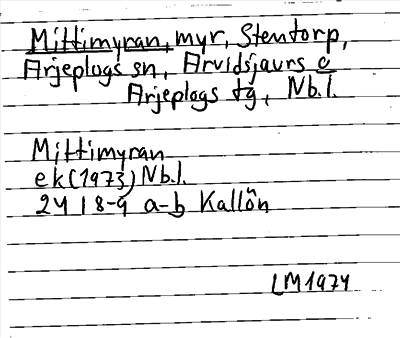 Mittimyran, myr, Stentorp,
Arjeplogs sn, Arvidsjaurs o
Arjeplogs tg, Nb.l.
Mittimyran
ek (1973) Nb.l.
24 I 8-9 a-b Kallön
LM 1974